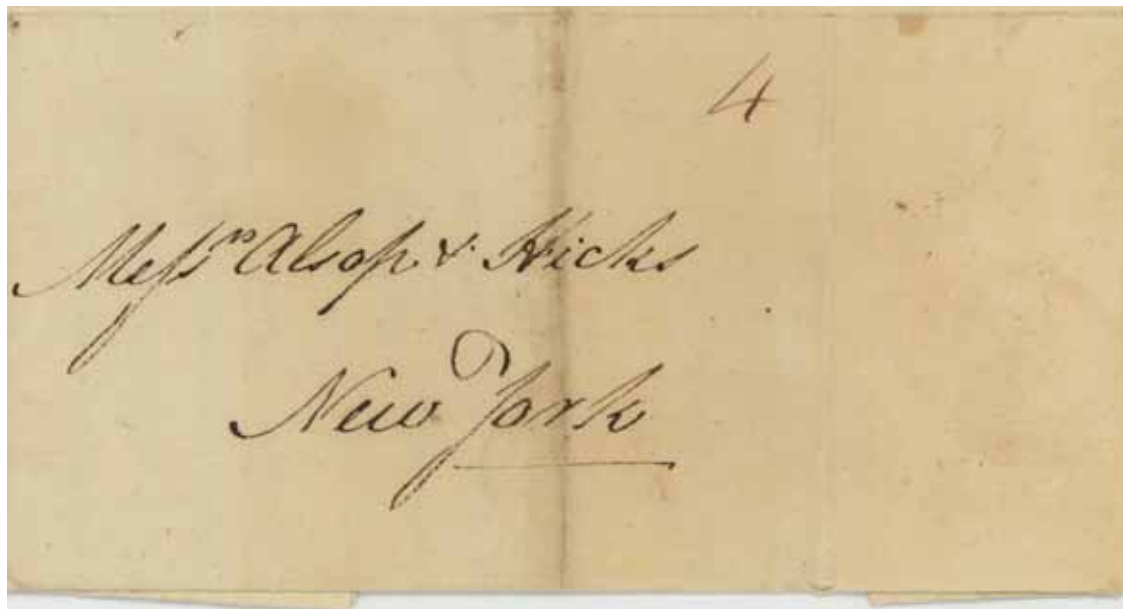 4
Messrs Alsop & Hicks
New York